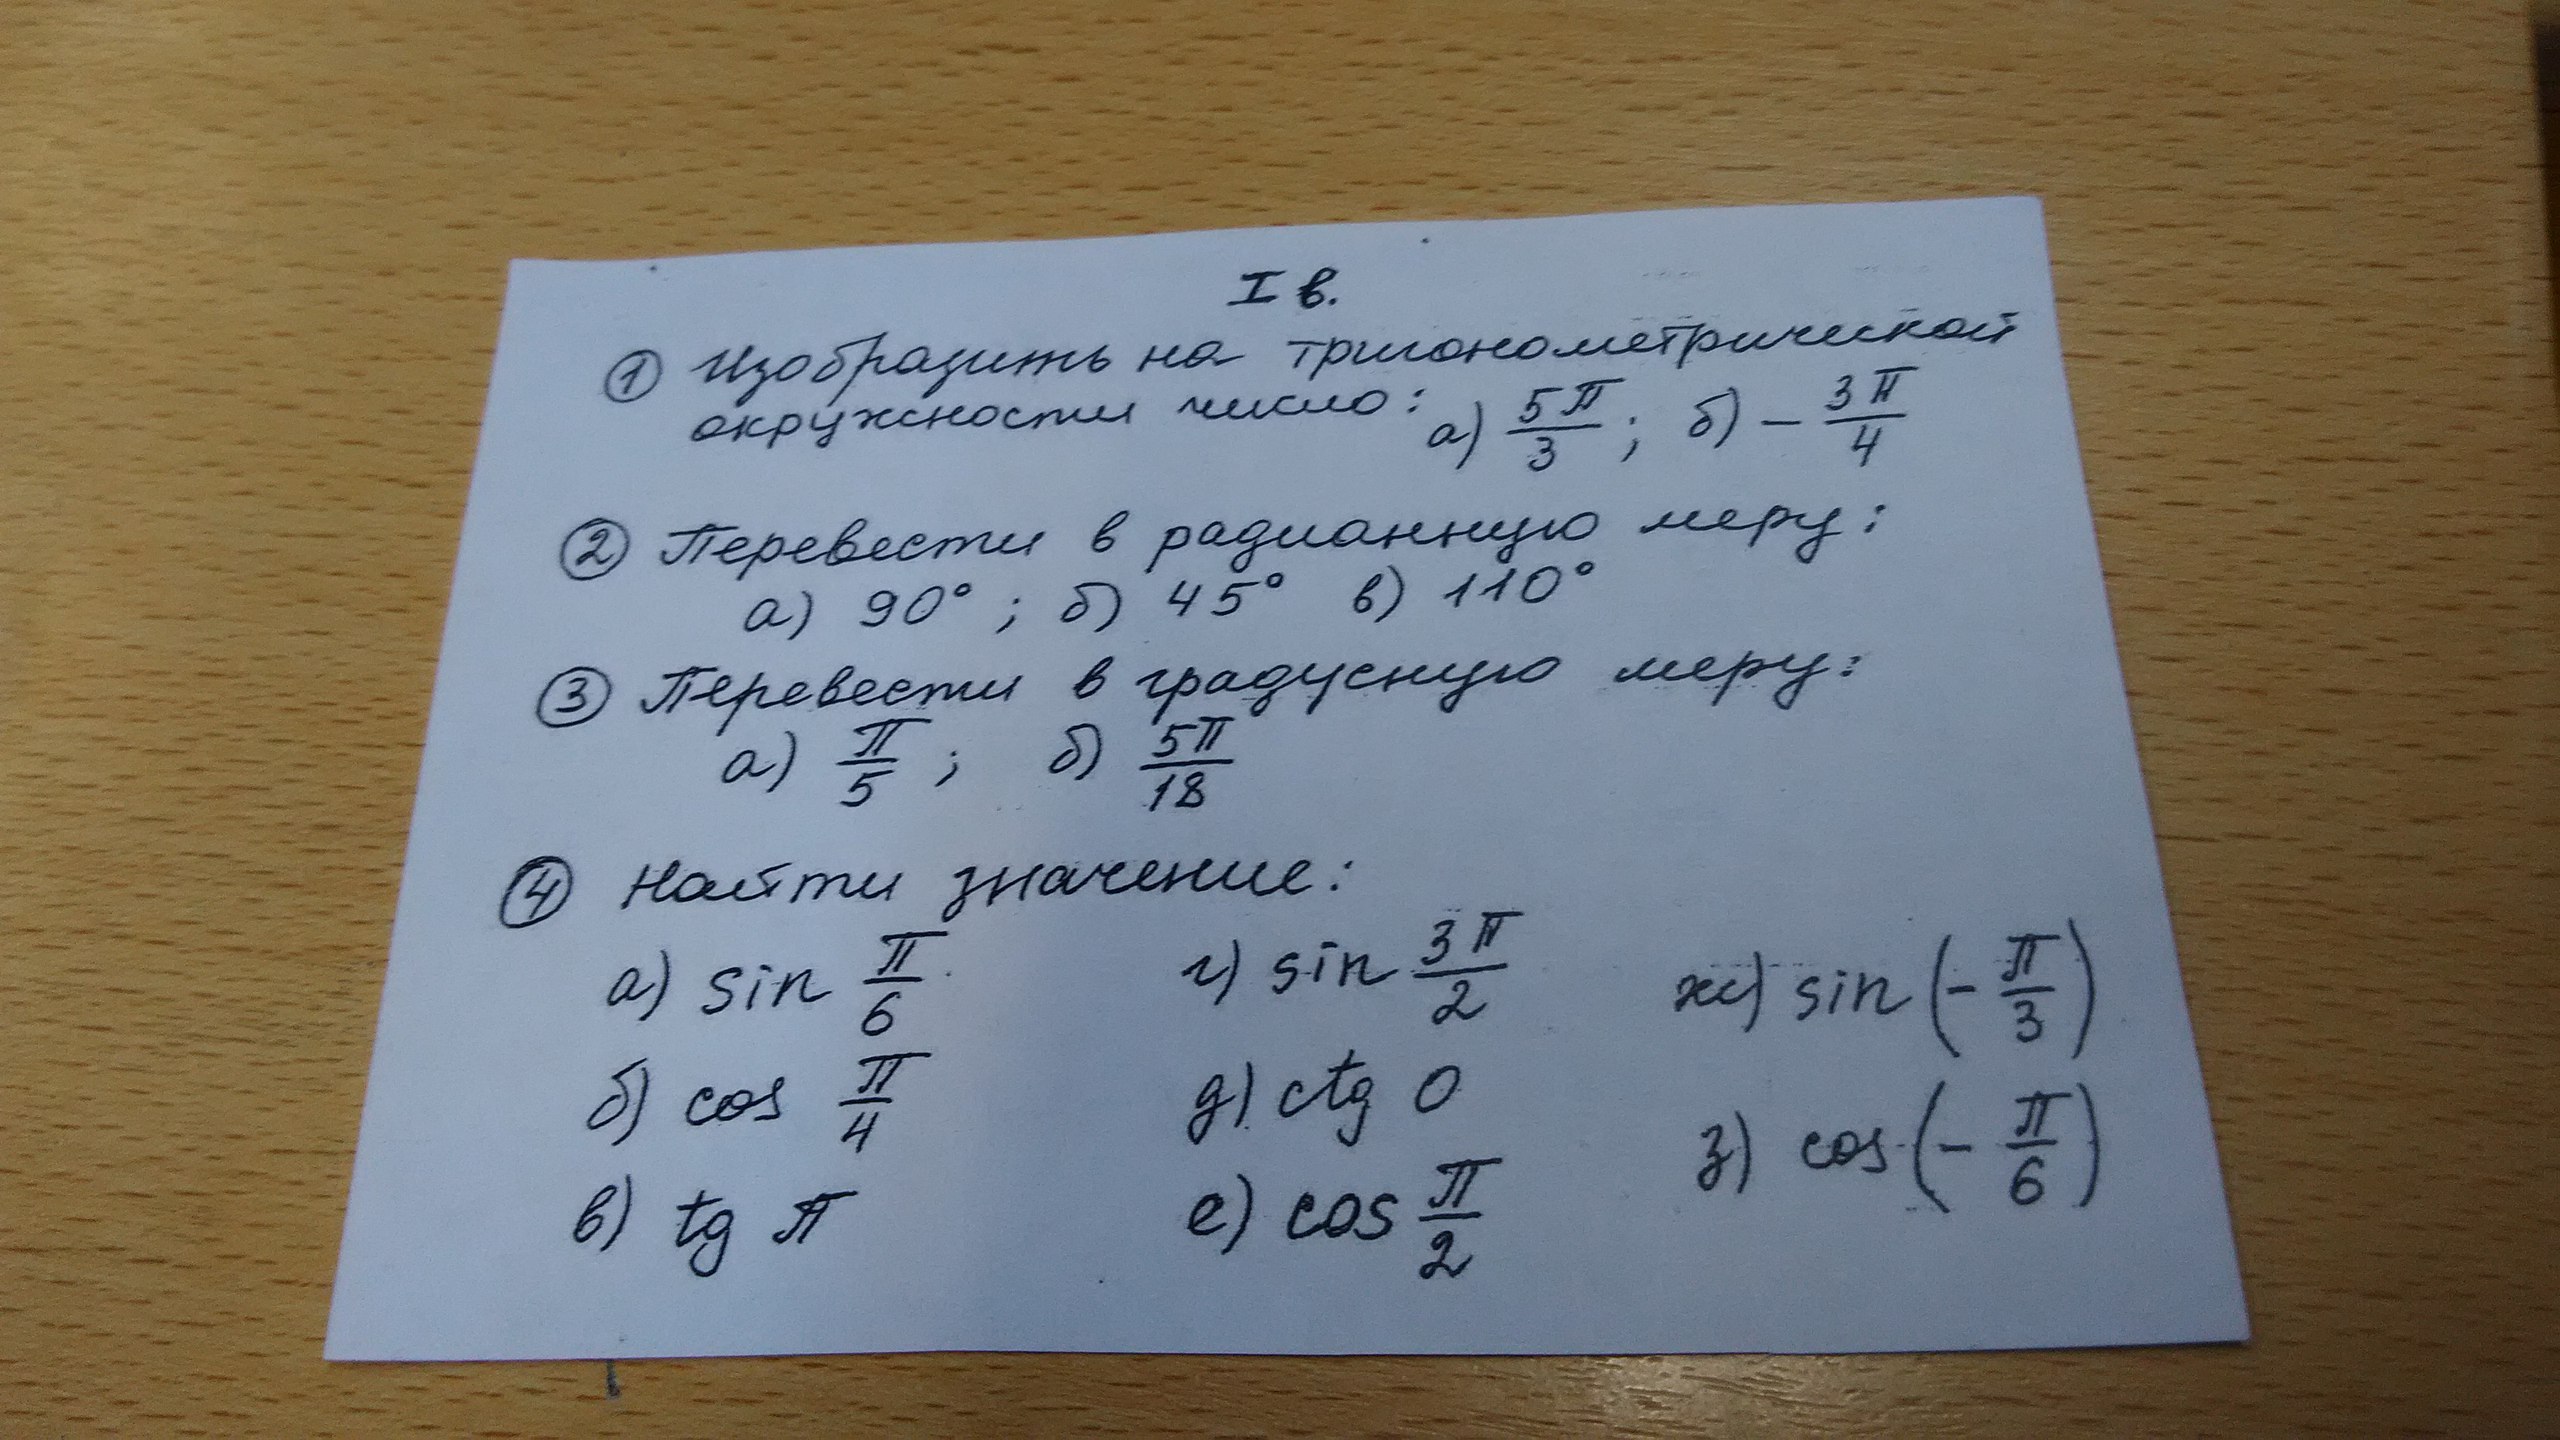 I в.
① Изобразить на тригонометрической
окружности число: а) 5π/3; б) - 3π/4
② Перевести в радианную меру:
а) 90°; б) 45° в) 110°
③ Перевести в градусную меру:
а) π/5; б) 5π/18
④ Найти значение:
а) sin π/6 г) sin 3π/2 ж) sin (- π/3)
б) cos π/4 д) ctg 0 з) cos (- π/6)
в) tg π е) cos π/2